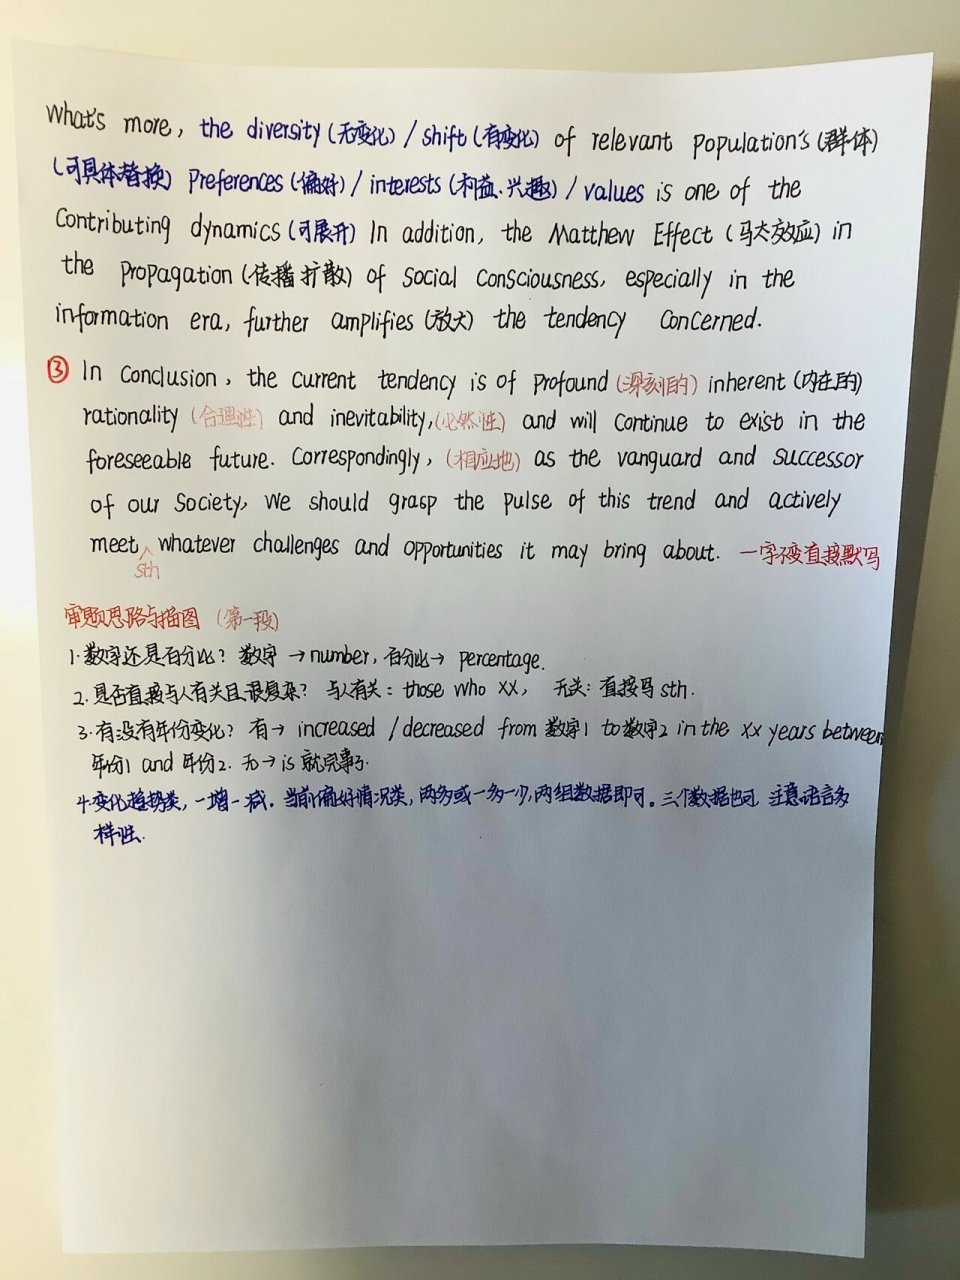 What's more, the diversity (无变化) / shift (有变化) of relevant population's (群体)
(可具体替换) preferences (偏好) / interests (利益、兴趣) / values is one of the
Contributing dynamics (可展开) In addition, the Matthew Effect (马太效应) in
the propagation (传播 扩散) of social Consciousness, especially in the
information era, further amplifies (放大) the tendency Concerned.
③ In Conclusion, the current tendency is of profound (深刻的) inherent (内在的)
rationality (合理性) and inevitability, (必然性) and will continue to exist in the
foreseeable future. Correspondingly, (相应地) as the vanguard and successor
of our society, we should grasp the pulse of this trend and actively
meet whatever challenges and opportunities it may bring about. 一字不变直接默写
sth
审题思路与描图 (第一段)
1. 数字还是百分比? 数字 → number, 百分比 → percentage.
2. 是否直接与人有关且最复杂? 与人有关: those who XX, 无关: 直接写 sth.
3. 有没有年份变化? 有 → increased / decreased from 数字1 to 数字2 in the XX years between
年份1 and 年份2. 无 → is 就完事了.
4. 变化趋势类, 一增一减. 当前偏好情况类, 两多或一多一少, 两组数据即可. 三个数据也可 注意语言多
样性.